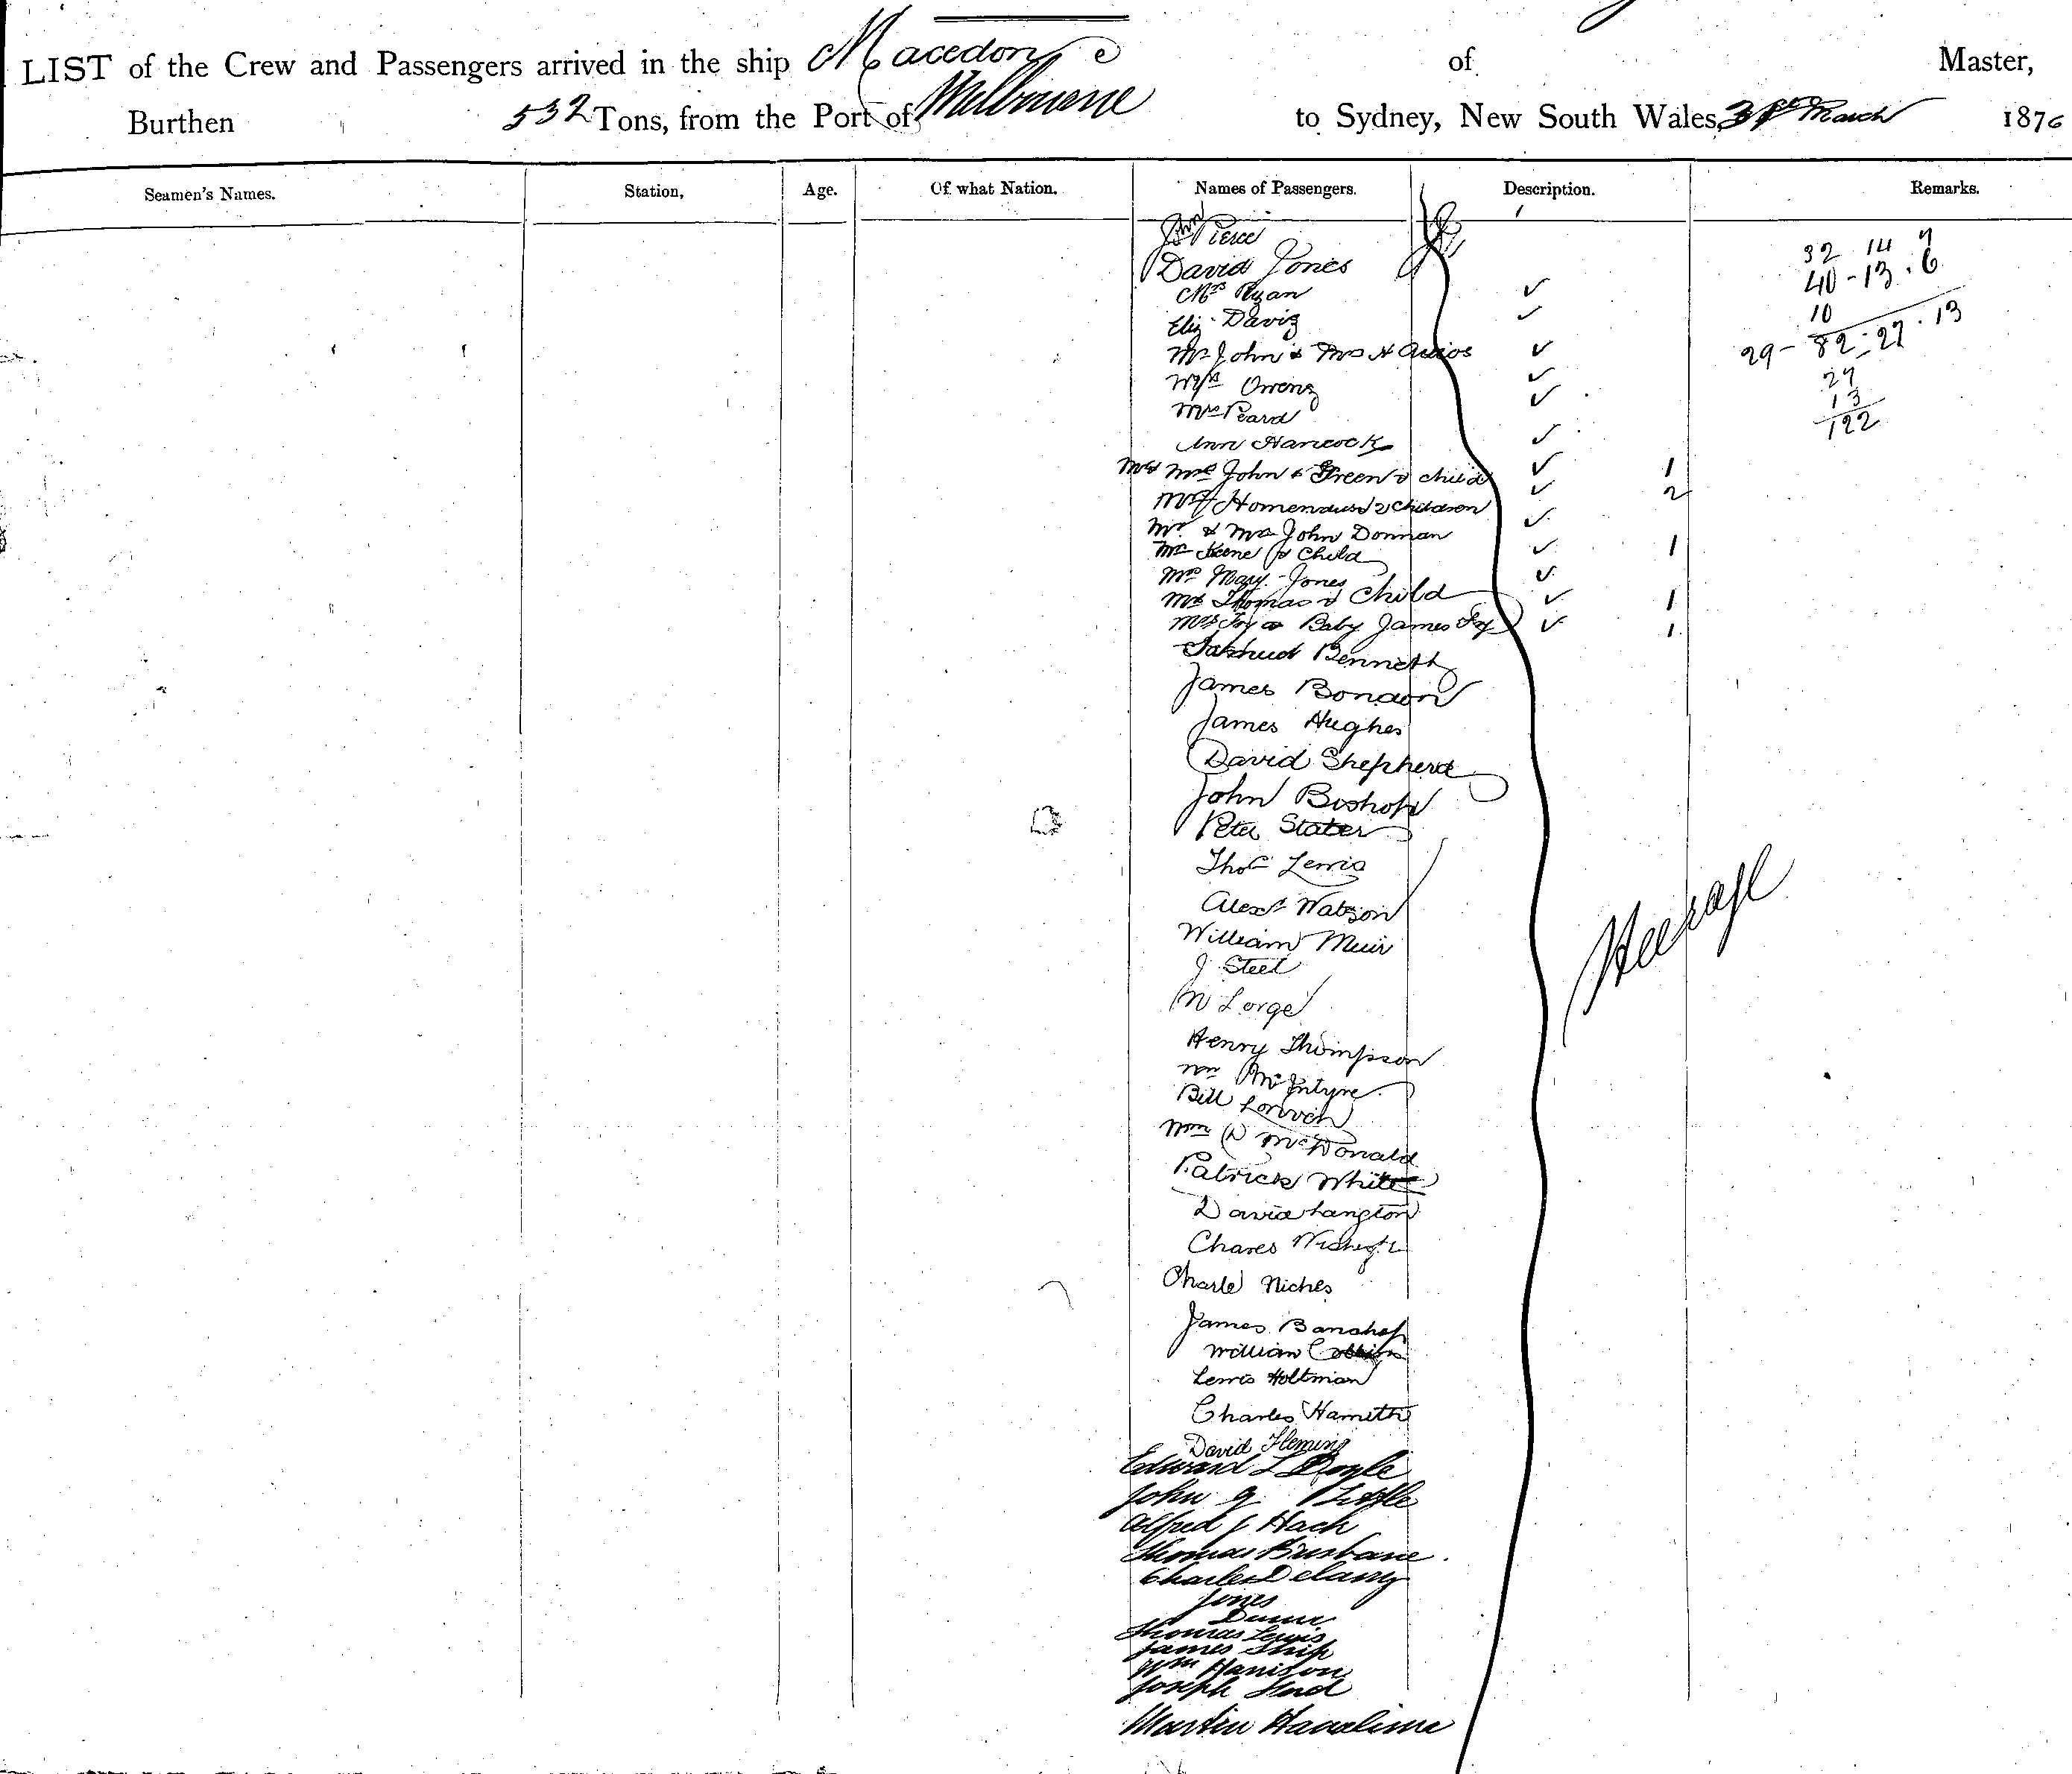 LIST of the Crew and Passengers arrived in the ship Macedon of Master,
Burthen 532 Tons, from the Port of Melbourne to Sydney, New South Wales, 31st March 1876
Seamen's Names. Station, Age. Of what Nation. Names of Passengers. Description. Remarks.
John Pierce 32 14 7
David Jones 40-13.6
Mrs Ryan ✓ 10
Eliz Davis ✓ 29-82-27.13
Mr John & Mrs H ✓ 27
Owens ✓ 13
Mrs Peard ✓ 122
Ann Hancock ✓
Mr & Mrs John Green & child ✓ 1
2 Children ✓ 2
Mr & Mrs John Donnan ✓
Mrs Keene & Child ✓ 1
Mrs Mary Jones ✓
Mrs Thomas & Child ✓ 1
Mrs Fry & Baby James Fry ✓ 1
Bennett
James
James Hughes
David Shepherd
John Bishop
Peter Slater
Thos Lewis
Alexr Watson
William Muir
J Steel
Steerage
W Lorge
Henry Thompson
Wm McIntyre
Bill
Wm D McDonald
Patrick White
David Langton
Chares
Charle Niches
James
William Collins
Lewis Holtman
Charles
David Fleming
Edward L Doyle
John G Little
Alfred J Hack
Thomas Brisbane
Charles Delany
Jones
Dunne
Thomas Lewis
James Ship
Wm Harrison
Joseph Hurd
Martin